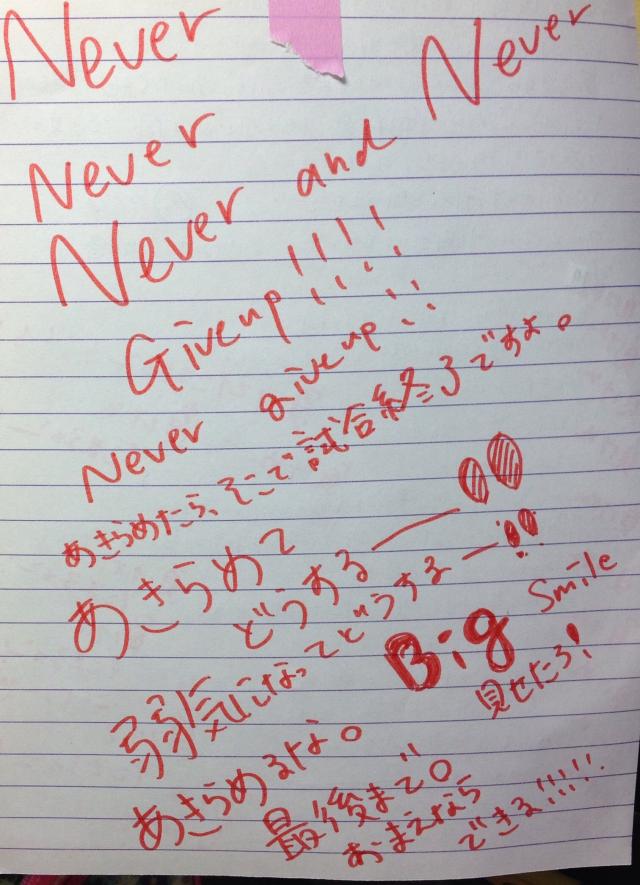 Never
Never
Never and Never
Give up!!!!
Never give up!!
あきらめたら、そこで試合終了ですよ。
あきらめて
どうするー!!
弱気になってどうするー!!
Big Smile
見せたろ!
あきらめるなよ。
最後まで。
おまえなら
できる!!!!!